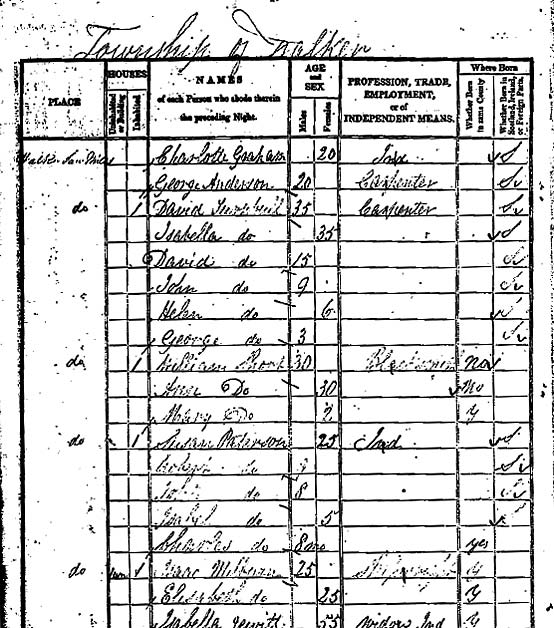 Township of Walker
PLACE
HOUSES
Uninhabited or Building
Inhabited
NAMES
of each Person who abode therein
the preceding Night.
AGE
and
SEX
Males
Females
PROFESSION, TRADE,
EMPLOYMENT,
or of
INDEPENDENT MEANS.
Where Born
Whether Born in same County
Whether Born in Scotland, Ireland, or Foreign Parts.
Charlotte Graham 20 Ind S
George Anderson 20 Carpenter S
do 1 David 35 Carpenter S
Isabella do 35 S
David do 15 S
John do 9 S
Helen do 6
George do 3 S
do 1 William Short 30 no
Ann Do 30 No
Mary Do 2 y
do 1 Susan Paterson 25 Ind S
do S
John do 8 S
Isabel do 5
Charles do 8 mo yes
do 1 Isaac Milburn 25 y
Elisabeth do 25 y
Isabella Hewitt 55 widow Ind y